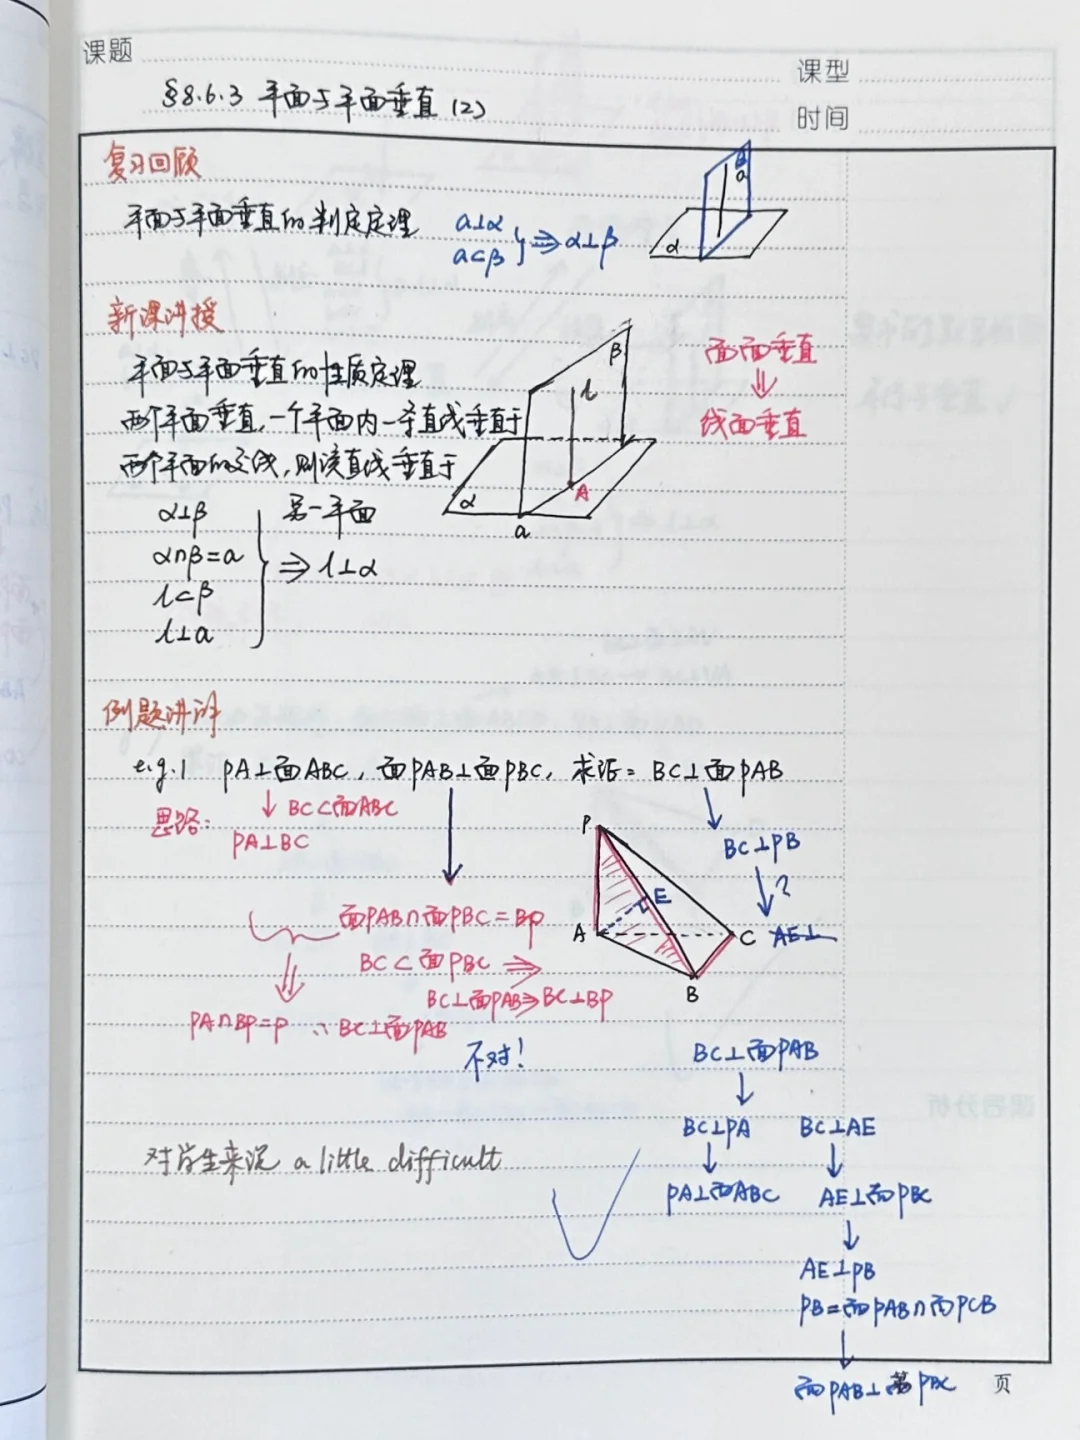 课题
课型
§8.6.3 平面与平面垂直(2)
时间
复习回顾
平面与平面垂直的判定定理
a⊥α
a⊂β
} ⇒ α⊥β
β
a
α
新课讲授
平面与平面垂直的性质定理
两个平面垂直,一个平面内一条直线垂直于
两个平面的交线,则该直线垂直于
另一平面
α⊥β
α∩β=a
l⊂β
l⊥a
} ⇒ l⊥α
β
l
A
α
a
面面垂直
⇓
线面垂直
例题讲评
e.g.1 PA⊥面ABC, 面PAB⊥面PBC, 求证: BC⊥面PAB
思路:
↓ BC⊂面ABC
PA⊥BC
面PAB∩面PBC=BP
BC⊂面PBC ⇒
BC⊥面PAB⇒BC⊥BP
PA∩BP=P ∴BC⊥面PAB
不对!
P
E
A
C
B
BC⊥PB
?
AE⊥
BC⊥面PAB
↓
BC⊥PA BC⊥AE
↓ ↓
PA⊥面ABC AE⊥面PBC
↓
AE⊥PB
PB=面PAB∩面PCB
↓
面PAB⊥面PBC
对学生来说 a little difficult
第 页